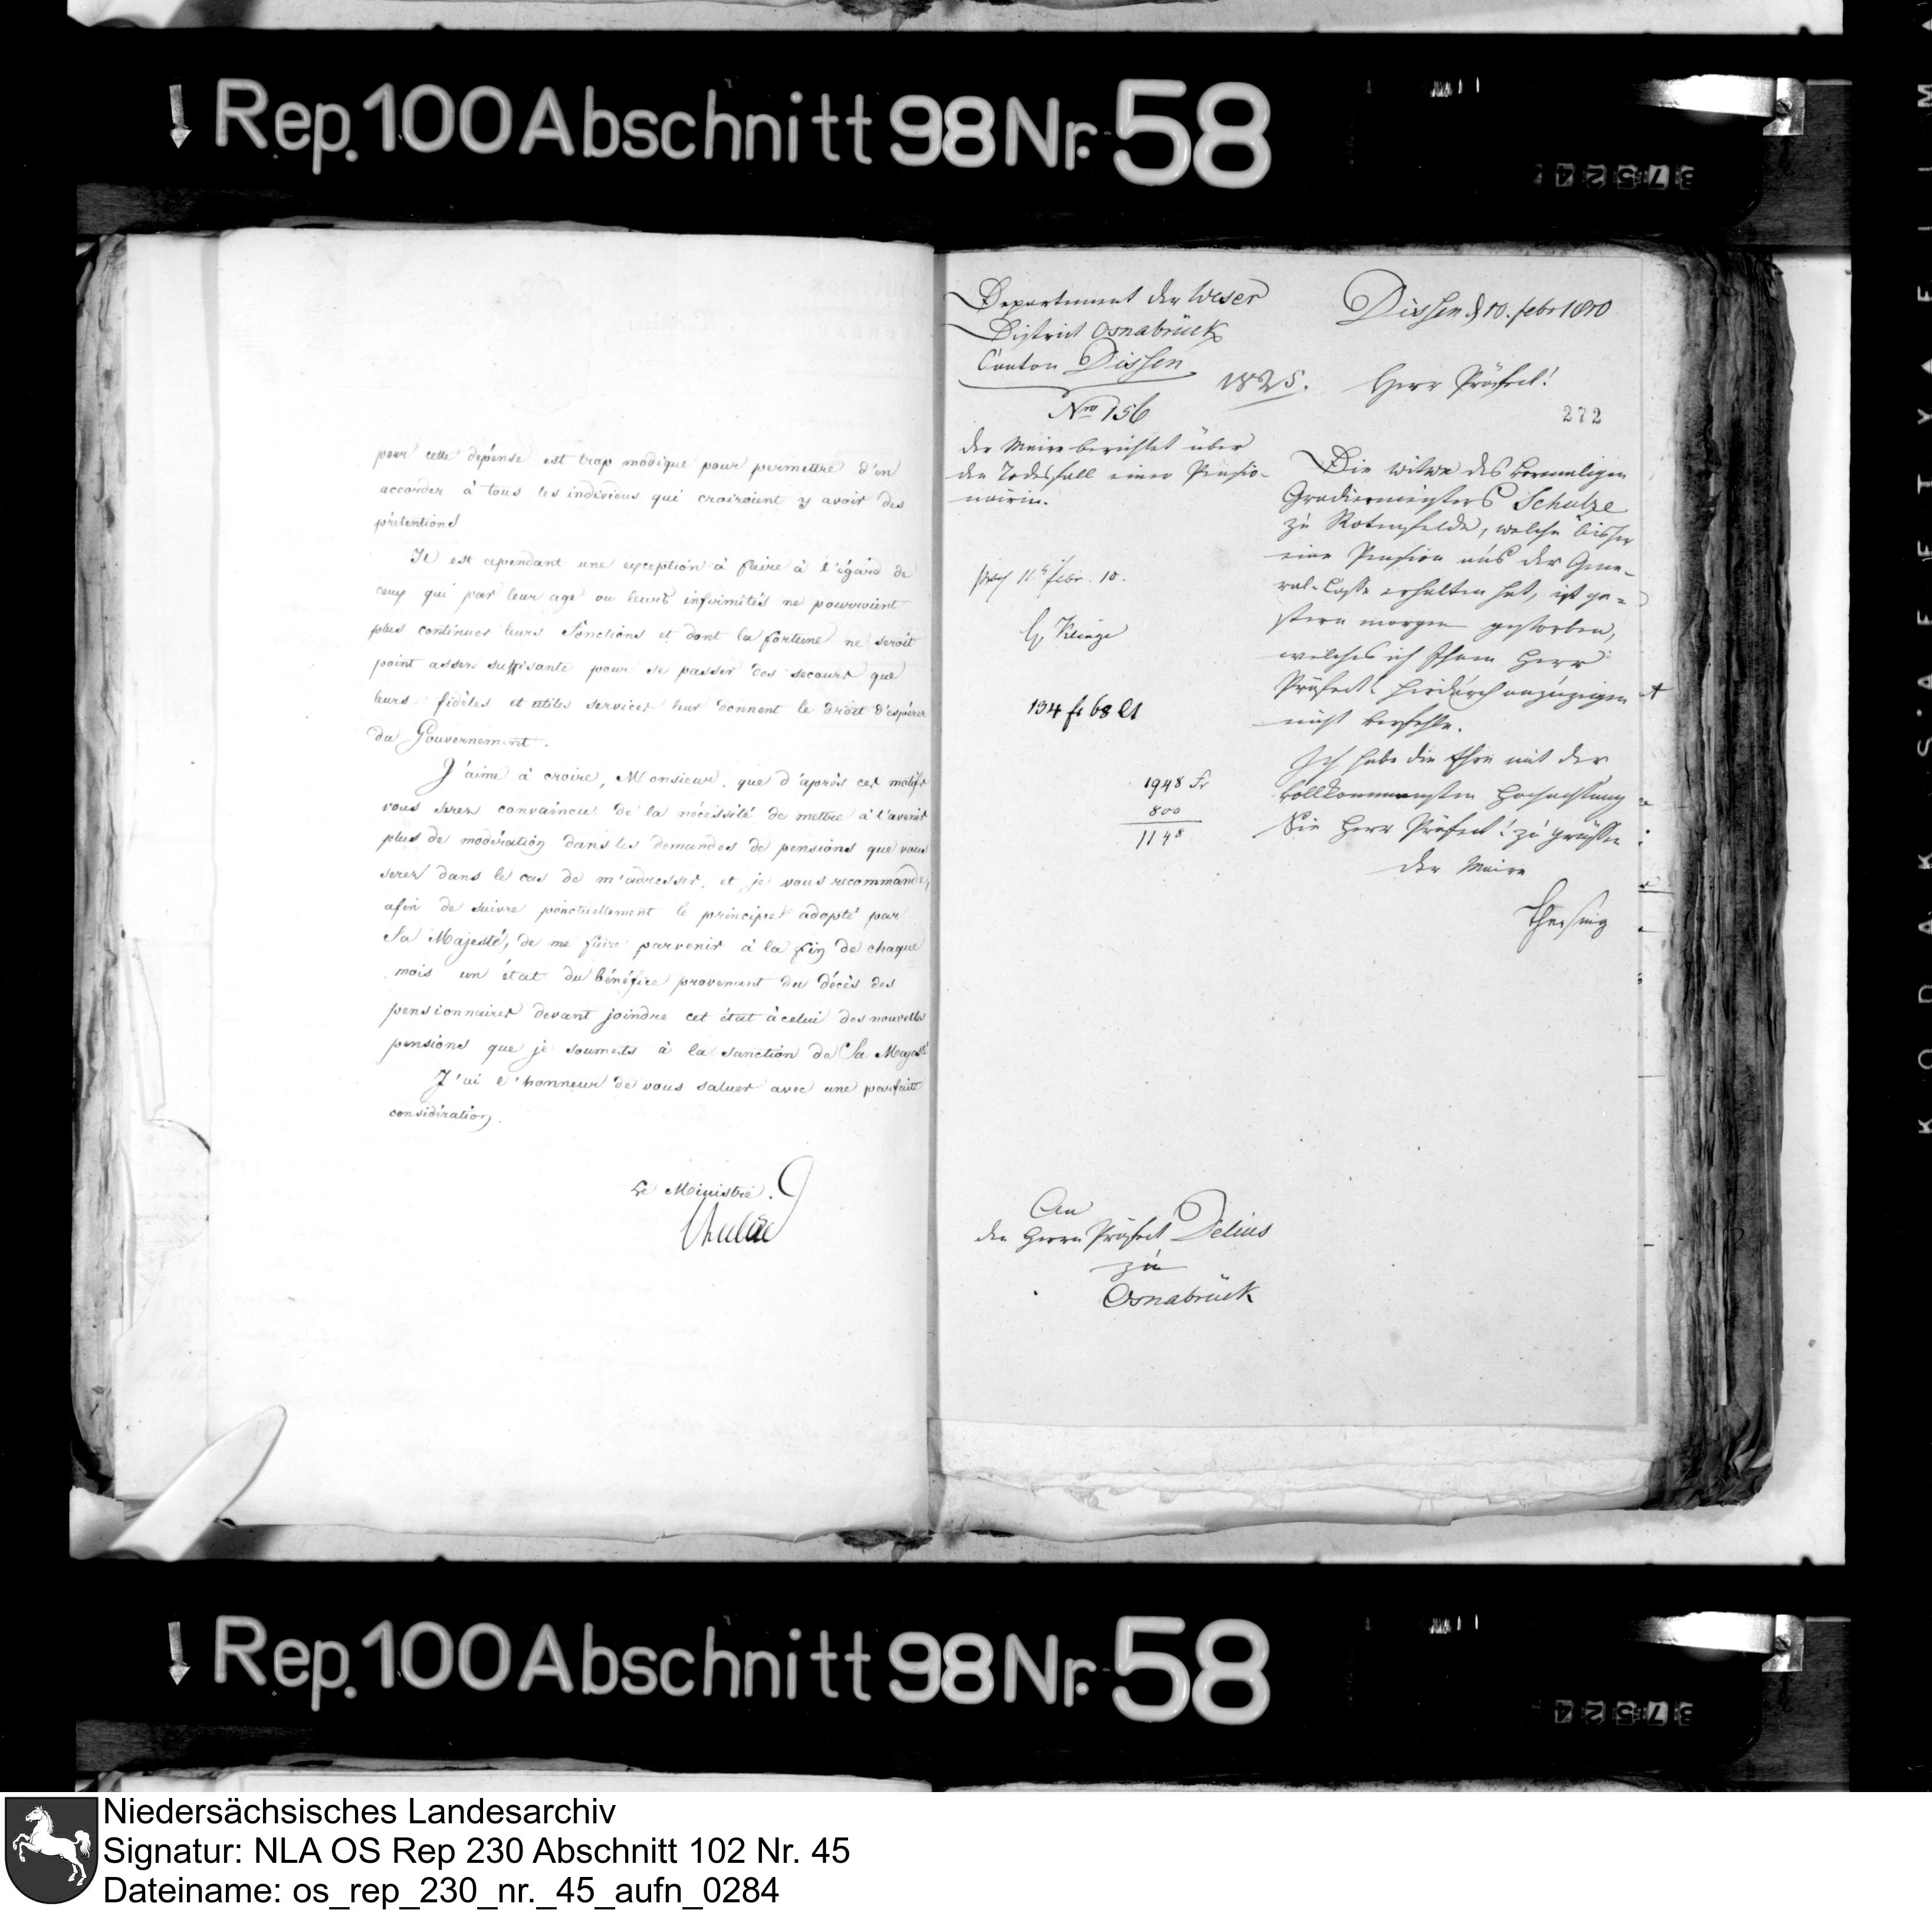 Rep. 100 Abschnitt 98 Nr. 58
37524
pour cette dépense est trop modique pour permettre d'en
accorder à tous les individus qui croiroient y avoir des
prétentions
Il est cependant une exception à faire à l'égard de
ceux qui par leur age ou leurs infirmités ne pourroient
plus continuer leurs fonctions et dont la fortune ne seroit
point assez suffisante pour se passer des secours que
leurs fidèles et utiles services leur donnent le droit d'espérer
du Gouvernement.
J'aime à croire, Monsieur, que d'après ces motifs
vous serez convaincu de la nécessité de mettre à l'avenir
plus de modération dans les demandes de pensions que vous
serez dans le cas de m'adresser, et je vous recommande,
afin de suivre ponctuellement le principe adopté par
Sa Majesté, de me faire parvenir à la fin de chaque
mois un état du bénéfice provenant du décès des
pensionnaires devant joindre cet état à celui des nouvelles
pensions que je soumets à la sanction de Sa Majesté
J'ai l'honneur de vous saluer avec une parfaite
considération.
Le Ministre.
Departement der Weser
District Osnabrück
Canton Dissen
Nro 156
1825.
Dissen d 10. febr 1810
Herr Präfect!
272
der Maire berichtet über
den Todesfall einer Pensio-
nairin.
11t febr. 10.
Klinge
134 fr 68 ct
1948 Fr
800
1148
Die Witwe des vormaligen
Gradiermeisters Schulze
zu Rotenfelde, welche bisher
eine Pension aus der Gene-
ral-Casse erhalten hat, ist ge-
stern morgen gestorben,
welches ich Ihnen Herr
Präfect! hiedurch anzuzeigen
nicht verfehle.
Ich habe die Ehre mit der
vollkommensten Hochachtung
Sie Herr Präfect! zu grüßen
der Maire
An
den Herrn Präfect Delius
zu
Osnabrück
Rep. 100 Abschnitt 98 Nr. 58
37524
Niedersächsisches Landesarchiv
Signatur: NLA OS Rep 230 Abschnitt 102 Nr. 45
Dateiname: os_rep_230_nr._45_aufn_0284